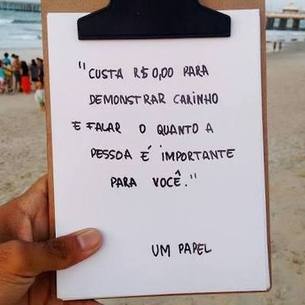 "CUSTA R$0,00 PARA
DEMONSTRAR CARINHO
E FALAR O QUANTO A
PESSOA É IMPORTANTE
PARA VOCÊ."
UM PAPEL